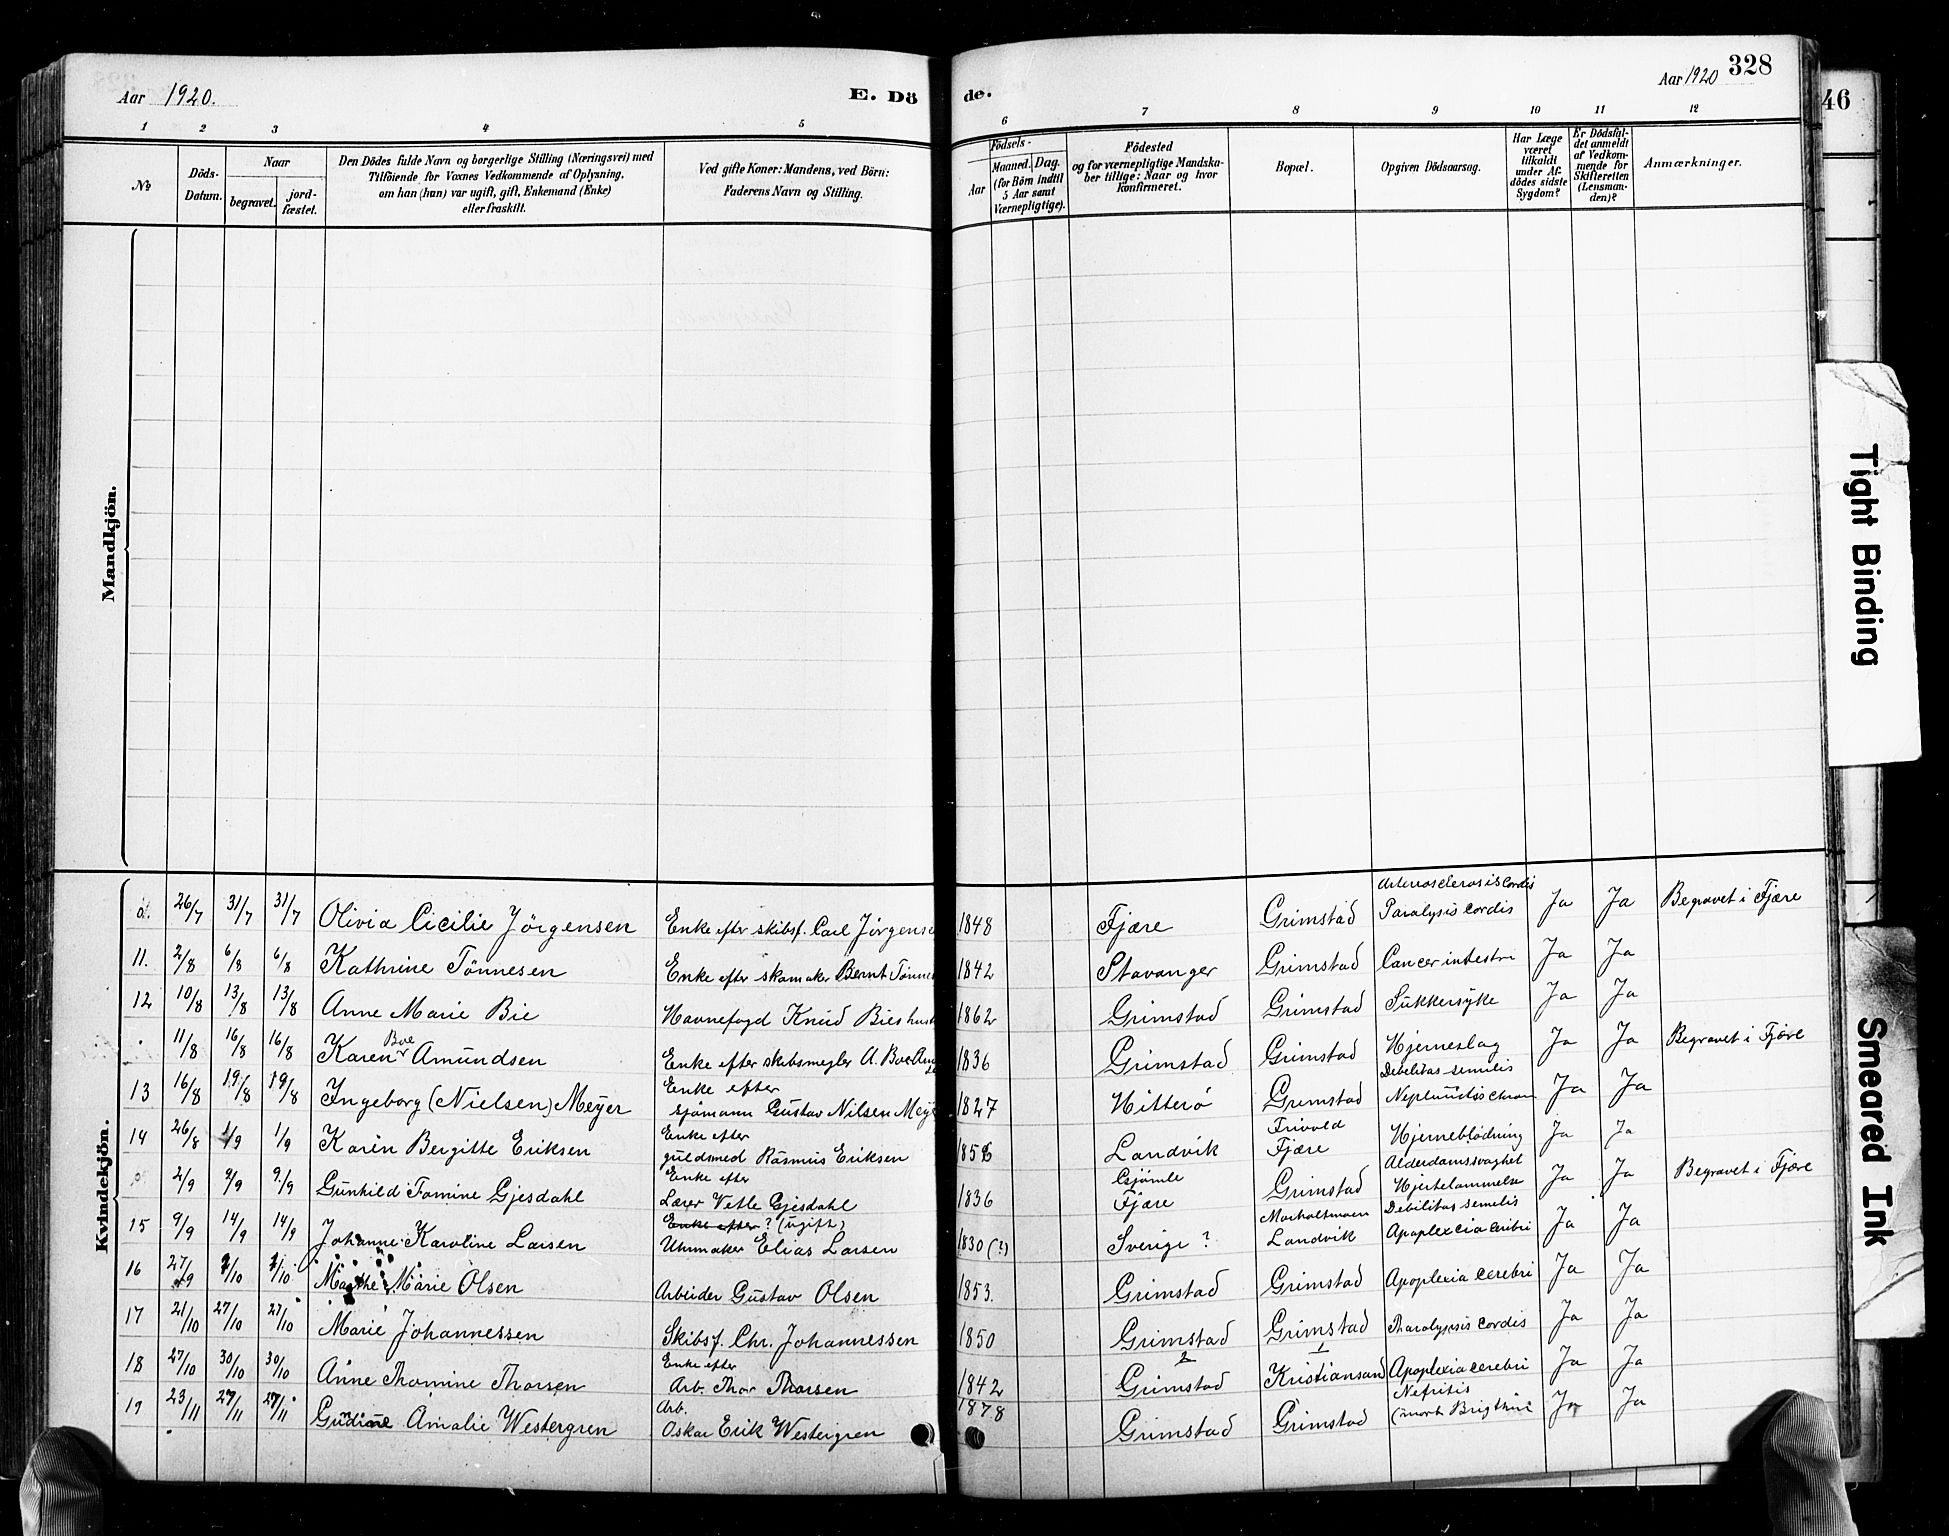 Aar 1920. E. Dö de. Aar 1920 328
46
1 2 3 4 5 6 7 8 9 10 11 12
No
Döds-Datum.
Naar
begravet.
jord-fæstet.
Den Dödes fulde Navn og borgerlige Stilling (Næringsvei) med
Tilföiende for Voxnes Vedkommende af Oplysning,
om han (hun) var ugift, gift, Enkemand (Enke)
eller fraskilt.
Ved gifte Koner: Mandens, ved Börn:
Faderens Navn og Stilling.
Födsels-
Aar
Maaned. Dag.
(for Börn indtil
5 Aar samt
Værnepligtige).
Födested
og for værnepligtige Mandska-
ber tillige: Naar og hvor
konfirmeret.
Bopæl.
Opgiven Dödsaarsag.
Har Læge
været
tilkaldt
under Af-
dödes sidste
Sygdom?
Er Dödsfal-
det anmeldt
af Vedkom-
mende for
Skifteretten
(Lensman-
den)?
Anmærkninger.
Mandkjön.
Kvindekjön.
26/7 31/7 31/7 Olivia Cicilie Jörgensen Enke efter skibsf. Carl Jörgense 1848 Fjære Grimstad Arteriosclerosis Cordis Paralysis cordis Ja Ja Begravet i Fjære
11. 2/8 6/8 6/8 Kathrine Tönnesen Enke efter skomaker Bernt Tönne 1842 Stavanger Grimstad Cancer intestri Ja Ja
12 10/8 13/8 13/8 Anne Marie Bie Havnefogd Knud Bies 1862 Grimstad Grimstad Sukkersyke Ja Ja
11/8 16/8 16/8 Karen Boe Amundsen Enke efter skibsmegler A. Boe 1836 Grimstad Grimstad Hjerneslag Ja Ja Begravet i Fjöre
13 16/8 19/8 19/8 Ingeborg (Nielsen) Meyer Enke efter sjömann Gustav Nilsen 1827 Hitterö Grimstad Debilitas semilis Ja Ja
14 26/8 1/9 1/9 Karen Bergitte Eriksen Enke efter guldsmed Rasmus Eriksen Landvik Frivold Fjære Hjerneblödning Ja Ja
2/9 9/9 9/9 Gunhild Tomine Gjesdahl Enke efter Lærer Vetle Gjesdahl 1836 Fjære Grimstad Alderdomssvaghet Hjertelammelse Ja Ja Begravet i Fjære
15 9/9 14/9 14/9 Johanne Karoline Larsen Enke efter ? (ugift) Uhrmaker Elias Larsen 1830 (?) Sverige ? Morholtmoen Landvik Debilitas semilis Apoplexcia ceribri Ja Ja
16 27/9 2/10 2/10 Marthe Marie Olsen Arbeider Gustav Olsen 1853. Grimstad Grimstad Apoplexia cerebri Ja Ja
17 21/10 27/10 27/10 Marie Johannessen Skibsf. Chr. Johannessen 1850 Grimstad Grimstad Pharalypsis cordis Ja Ja
18 27/10 30/10 30/10 Anne Thomine Thorsen Enke efter Arb. Thor Thorsen 1842 2 Grimstad 1 Kristiansand Apoplexia cerebri Ja Ja
19 23/11 27/11 27/11 Gudine Amalie Westergren Arb. Oskar Erik Westergren 1878 Grimstad Grimstad Nefritis Ja Ja
Tight Binding
Smeared Ink